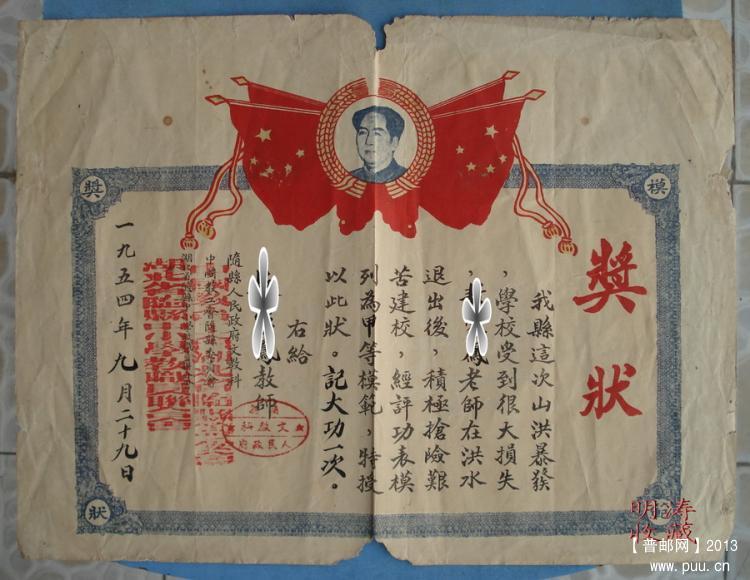 獎狀
我縣這次山洪暴發
，學校受到很大損失
，
老師在洪水
退出後，積極搶險艱
苦建校，經評功表模
列為甲等模範，特授
以此狀。記大功一次。
右給
教師
隨縣人民政府文教科
一九五四年九月二十九日
模
獎
狀
人民政府
明涛
收藏
【普邮网】2013
www.puu.cn